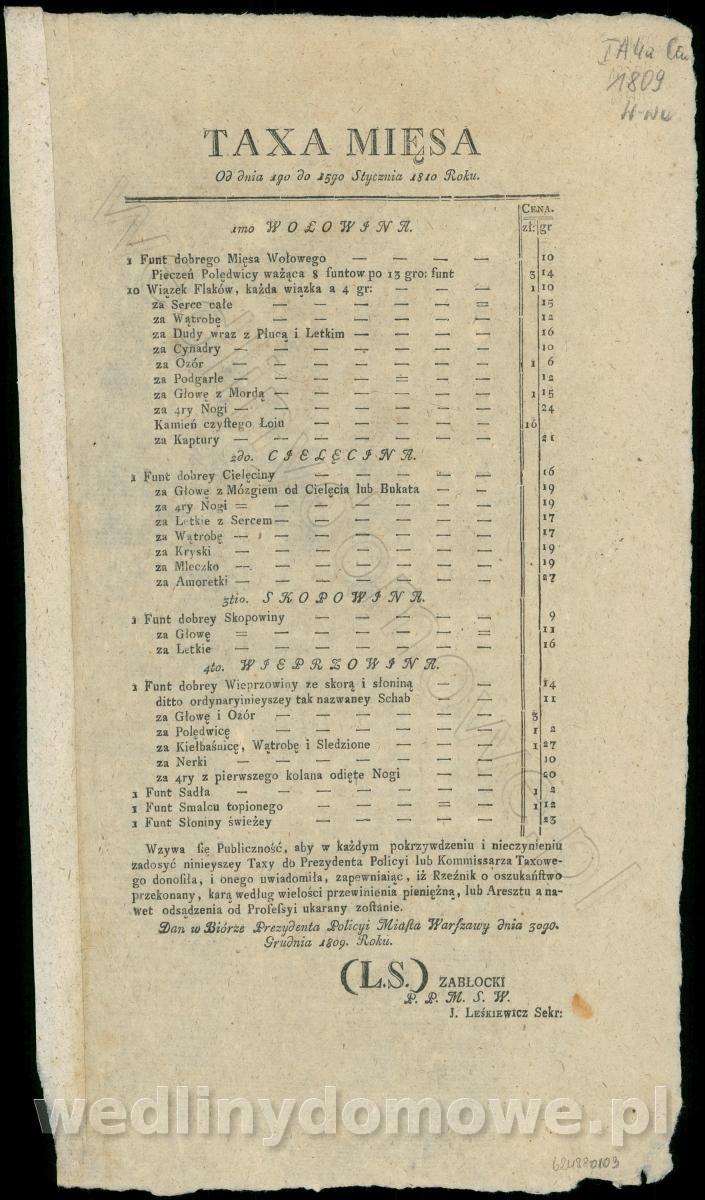 1809
TAXA MIĘSA
Od dnia 1go do 15go Stycznia 1810 Roku.
CENA.
zł: gr
1mo WOŁOWINA.
1 Funt dobrego Mięsa Wołowego — — — 10
Pieczeń Polędwicy ważąca 8 funtow po 13 gro: funt 3 14
10 Wiązek Flaków, każda wiązka a 4 gr: — — — 1 10
za Serce całe — — — — — = 15
za Wątrobę — — — — — — 12
za Dudy wraz z Płucą i Letkim — — — — 16
za Cynadry — — — — — — 10
za Ozór — — — — — — — 1 6
za Podgarle — — — — = — — 12
za Głowę z Mordą — — — — — — 1 15
za 4ry Nogi — — — — — — — 24
Kamień czyſtego Łoiu — — — — — 16
za Kaptury — — — — — — — 21
2do. CIELĘCINA.
1 Funt dobrey Cielęciny — — — — — 16
za Głowę z Mózgiem od Cielęcia lub Bukata — — 19
za 4ry Nogi = — — — — — — 19
za Letkie z Sercem — — — — — — 17
za Wątrobę — — — — — — — 17
za Kryski — — — — — — — 19
za Mleczko — — — — — — — 19
za Amoretki — — — — — — — 27
3tio. SKOPOWINA.
1 Funt dobrey Skopowiny — — — — — 9
za Głowę = — — — — — = 11
za Letkie — — — — — — — 16
4to. WIEPRZOWINA.
1 Funt dobrey Wieprzowiny ze skorą i słoniną — — 14
ditto ordynaryinieyszey tak nazwaney Schab — — 11
za Głowę i Ozór — — — — — — 3
za Polędwicę — — — — — — — 1 2
za Kiełbaśnicę, Wątrobę i Sledzione — — — 1 27
za Nerki — — — — — — — 10
za 4ry z pierwszego kolana odięte Nogi — — — 20
1 Funt Sadła — — — — — — — 1 2
1 Funt Smalcu topionego — — — = — 1 12
1 Funt Słoniny świeżey — — — — — 23
Wzywa ſię Publiczność, aby w każdym pokrzywdzeniu i nieczynieniu
zadosyć ninieyszey Taxy do Prezydenta Policyi lub Kommissarza Taxowe-
go donoſiła, i onego uwiadomiła, zapewniaiąc, iż Rzeźnik o oszukańſtwo
przekonany, karą według wielości przewinienia pieniężną, lub Aresztu a na-
wet odsądzenia od Profeſsyi ukarany zoſtanie.
Dan w Biórze Prezydenta Policyi Miaſta Warſzawy dnia 30go.
Grudnia 1809. Roku.
(L.S.) ZABŁOCKI
P. P. M. S. W.
J. LEŚKIEWICZ Sekr:
wedlinydomowe.pl